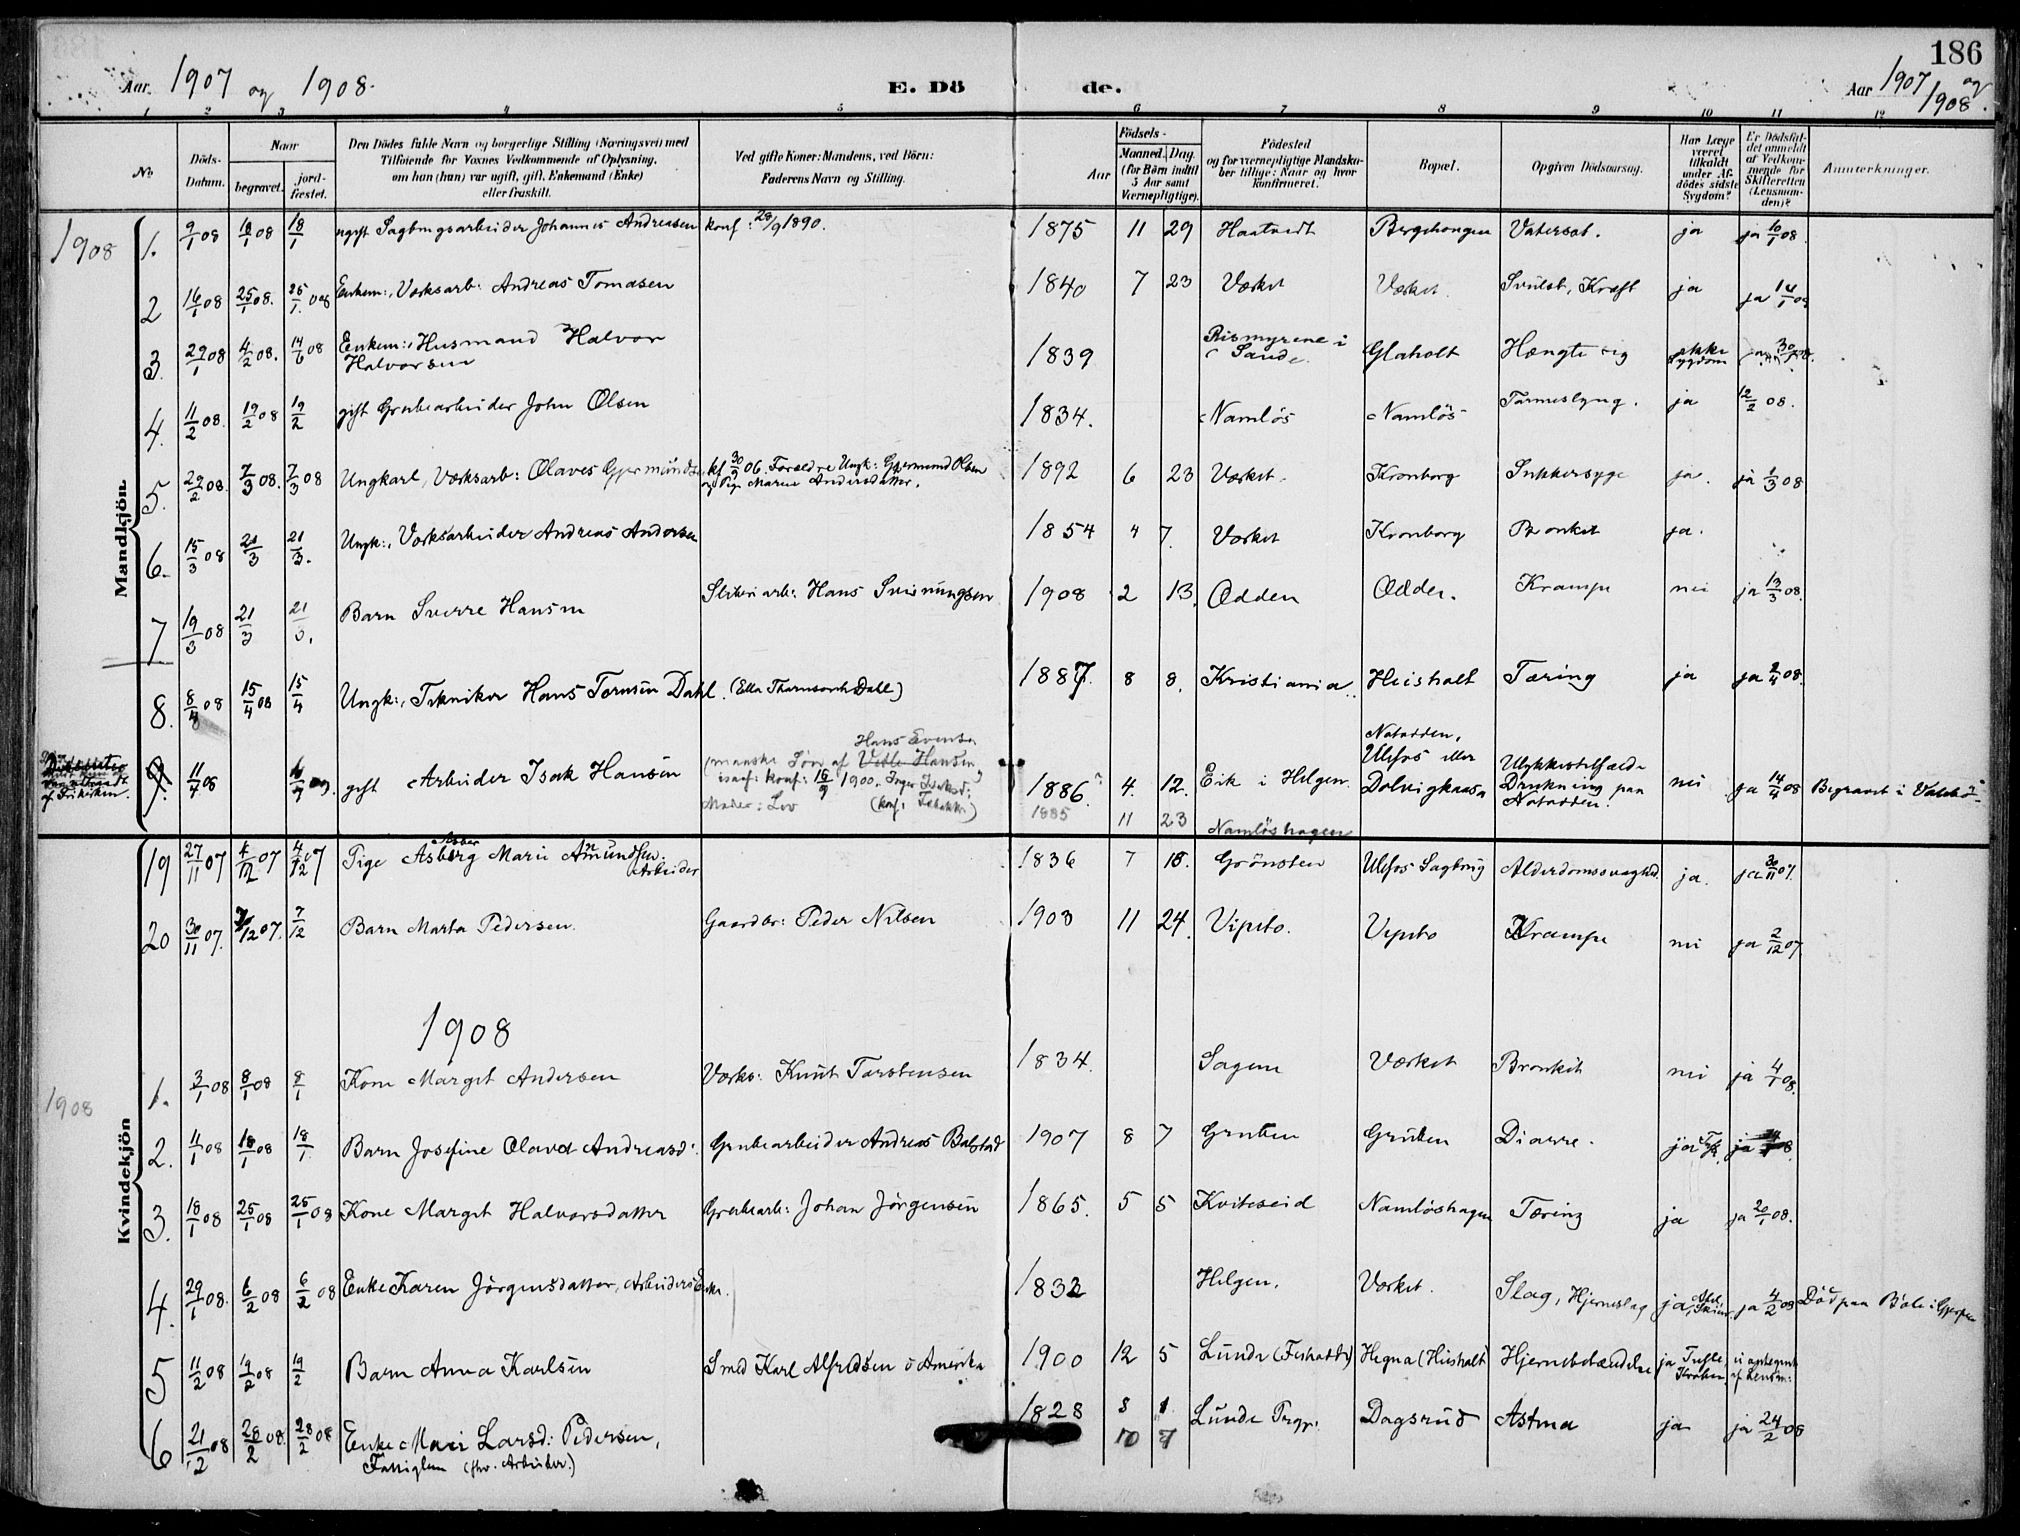 186
Aar 1907 og 1908.
E. Dö
de.
Aar 1907 og 1908.
1 2 3 4 5 6 7 8 9 10 11 12
No
Döds-
Datum.
Naar
begravet.
jord-
fæstet.
Den Dödes fulde Navn og borgerlige Stilling (Næringsvei) med
Tilföiende for Voxnes Vedkommende af Oplysning,
om han (hun) var ugift, gift, Enkemand (Enke)
eller fraskilt.
Ved gifte Koner: Mandens, ved Börn:
Faderens Navn og Stilling.
Aar
Födsels-
Maaned. Dag.
(for Börn indtil
5 Aar samt
Værnepligtige).
Födested
og for værnepligtige Mandska-
ber tillige: Naar og hvor
konfirmeret.
Bopæl.
Opgiven Dödsaarsag.
Har Læge
været
tilkaldt
under Af-
dödes sidste
Sygdom?
Er Dödsfal-
det anmeldt
af Vedkom-
mende for
Skifteretten
(Lensman-
den)?
Anmærkninger.
Mandkjön.
1908
1. 9/1 08 18/1 08 18/1 ugift Sagbrugsarbeider Johannes Andreasen konf: 28/9 1890. 1875 11 29 Haatvedt Bergehaugen Vatersot. ja ja 10/1 08.
2 16/1 08 25/1 08. 25/1 08 Enkem:, Værksarb: Andreas Tomasen 1840 7 23 Værket Værket. Svulst, Kræft ja ja
3. 29/1 08 4/2 08. 14/6 08 Enkem:, Husmand Halvor
Halvorsen 1839 Rismyrene i
Saude. Glaholt Hængte sig ikke
sygdom
4. 11/2 08. 19/2 08 19/2 gift Grubearbeider John Olsen 1834. Namløs Namløs Tarmeslyng. ja 12/2 08.
5. 29/2 08. 7/3 08. 7/3 08 Ungkarl, Værksarb: Olaves Gjermunds. kf 30/9 06. Forældre Ungk: Gjermund Olsen
og Pige Maren Andersdatter. 1892 6 23 Værket. Kronborg Sukkersyge ja. ja 1/3 08
6. 15/3 08 21/3 21/3. Ungk:, Værksarbeider Andreas Andersen 1854 4 7. Værket Kronborg Bronkit ja.
7 19/3 08 21/3 21/3. Barn Sverre Hansen Sliberiarb: Hans Sveinungsen 1908 2 13. Odden Odden. Krampe nei ja 13/3 08.
8. 8/4 08 15/4 08 15/4 Ungk:, Tekniker Hans Tomsen Dahl. (Ella Thomson Dahl) 1887. 8 8. Kristiania Heisholt Tæring ja ja 2/4 08.
9. 11/4 08 gift Arbeider Isak Hansen
Hans Evensen
(maaske Søn af Vetle Hansen)
konf: 16/9 1900.
1886. 4. 12. Eik i Helgen.
1885 11 23 Namløshagen
Notodden.
Ulefos eller
Dolvigkaasa
Ulykkestilfælde
Drukning paa
Notodden. nei ja 14/4 08 Begravet i
af Frikirken.
Kvindekjön
19 27/11 07 4/12 07 4/12 07 Pige Asberg Marie Amundsen.
Arbeider 1836 7 15. Grønsten Ulefos Sagbrug Alderdomssvaghed. ja. ja 30/11 07.
20 30/11 07. 7/12 07. 7/12 Barn Marta Pedersen. Gaardbr: Peder Nilsen 1903 11 24. Vipeto. Vipeto Krampe nei ja 2/12 07.
1908
1908
1. 3/1 08 8/1 08 8/1 Kone Marget Andersen Værks: Knut Torstensen 1834. Sagene Værket Bronkit nei ja 4/1 08.
2. 11/1 08 18/1 08 18/1. Barn Josefine Olava Andreasd: Grubearbeider Andreas Bolstad 1907 8 7 Gruben Gruben Diarre. ja
3. 18/1 08 25/1 08 25/1 08 Kone Marget Halvorsdatter Grubearb: Johan Jørgensen 1865. 5 5 Kviteseid Namløshagen Tæring ja ja 20/1 08.
4. 29/1 08. 6/2 08 6/2 08 Enke Karen Jørgensdatter, Arbeiders Enke. 1832 Helgen. Værket. Slag, Hjerneslag ja, ja 4/2 08 Død paa Bøle i Gjerpen
5 11/2 08 19/2 08 19/2 Barn Anna Karlsen Smed Karl Alfredsen i Amerika 1900 12 5 Lunde Hegna (Heisholt Hjernebetændelse ja
6 21/2 08 28/2 08. 28/2 08 Enke Mari Larsd: Pedersen,
Fattiglem (fhv. Arbeider.) 1828 8 1 Lunde Prgj: Dagsrud Astma ja ja 24/2 08
10 7